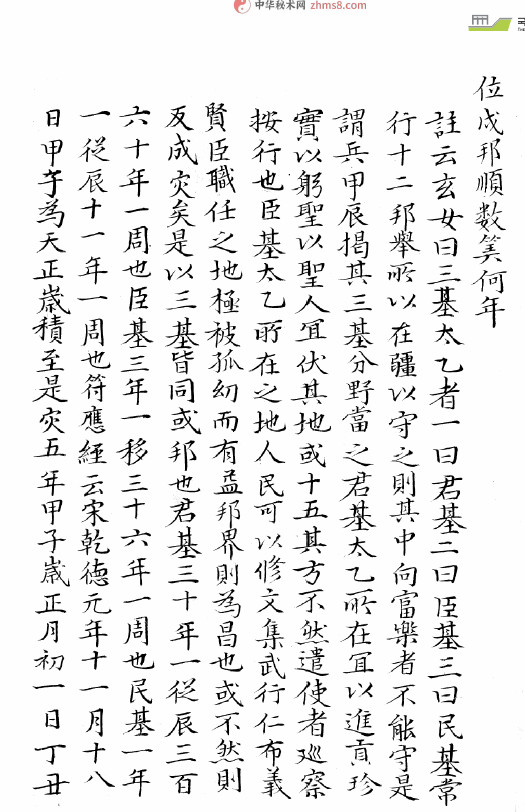 中华秘术网 zhms8.com
位戍邦順数筭何年
註云玄女曰三基太乙者一曰君基二曰臣基三曰民基常
行十二邦舉所以在疆以守之則其中向富樂者不能守是
謂兵甲辰揭其三基分野當之君基太乙所在宜以進貢珍
寶以躬聖以聖人宜伏其地或十五其方不然遣使者廵察
按行也臣基太乙所在之地人民可以修文集武行仁布義
賢臣職任之地極被孤幼而有益邦界則為昌也或不然則
反成灾矣是以三基皆同或邦也君基三十年一徙辰三百
六十年一周也臣基三年一移三十六年一周也民基一年
一徙辰十一年一周也符應經云宋乾德元年十一月十八
日甲子為天正嵗積至是灾五年甲子嵗正月初一日丁丑